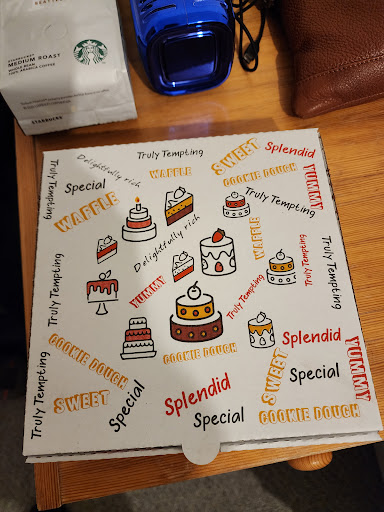 SEATTLE
STARBUCKS
MEDIUM ROAST
WHOLE BEAN
100% ARABICA COFFEE
STARBUCKS
Truly Tempting
Delightfully rich
Truly Tempting
SWEET
Splendid
Special
WAFFLE
COOKIE DOUGH
YUMMY
WAFFLE
Delightfully rich
Truly Tempting
WAFFLE
Truly Tempting
YUMMY
Truly Tempting
Truly Tempting
Truly Tempting
COOKIE DOUGH
COOKIE DOUGH
Splendid
YUMMY
Truly Tempting
SWEET
Special
Splendid
SWEET
Special
Special
COOKIE DOUGH